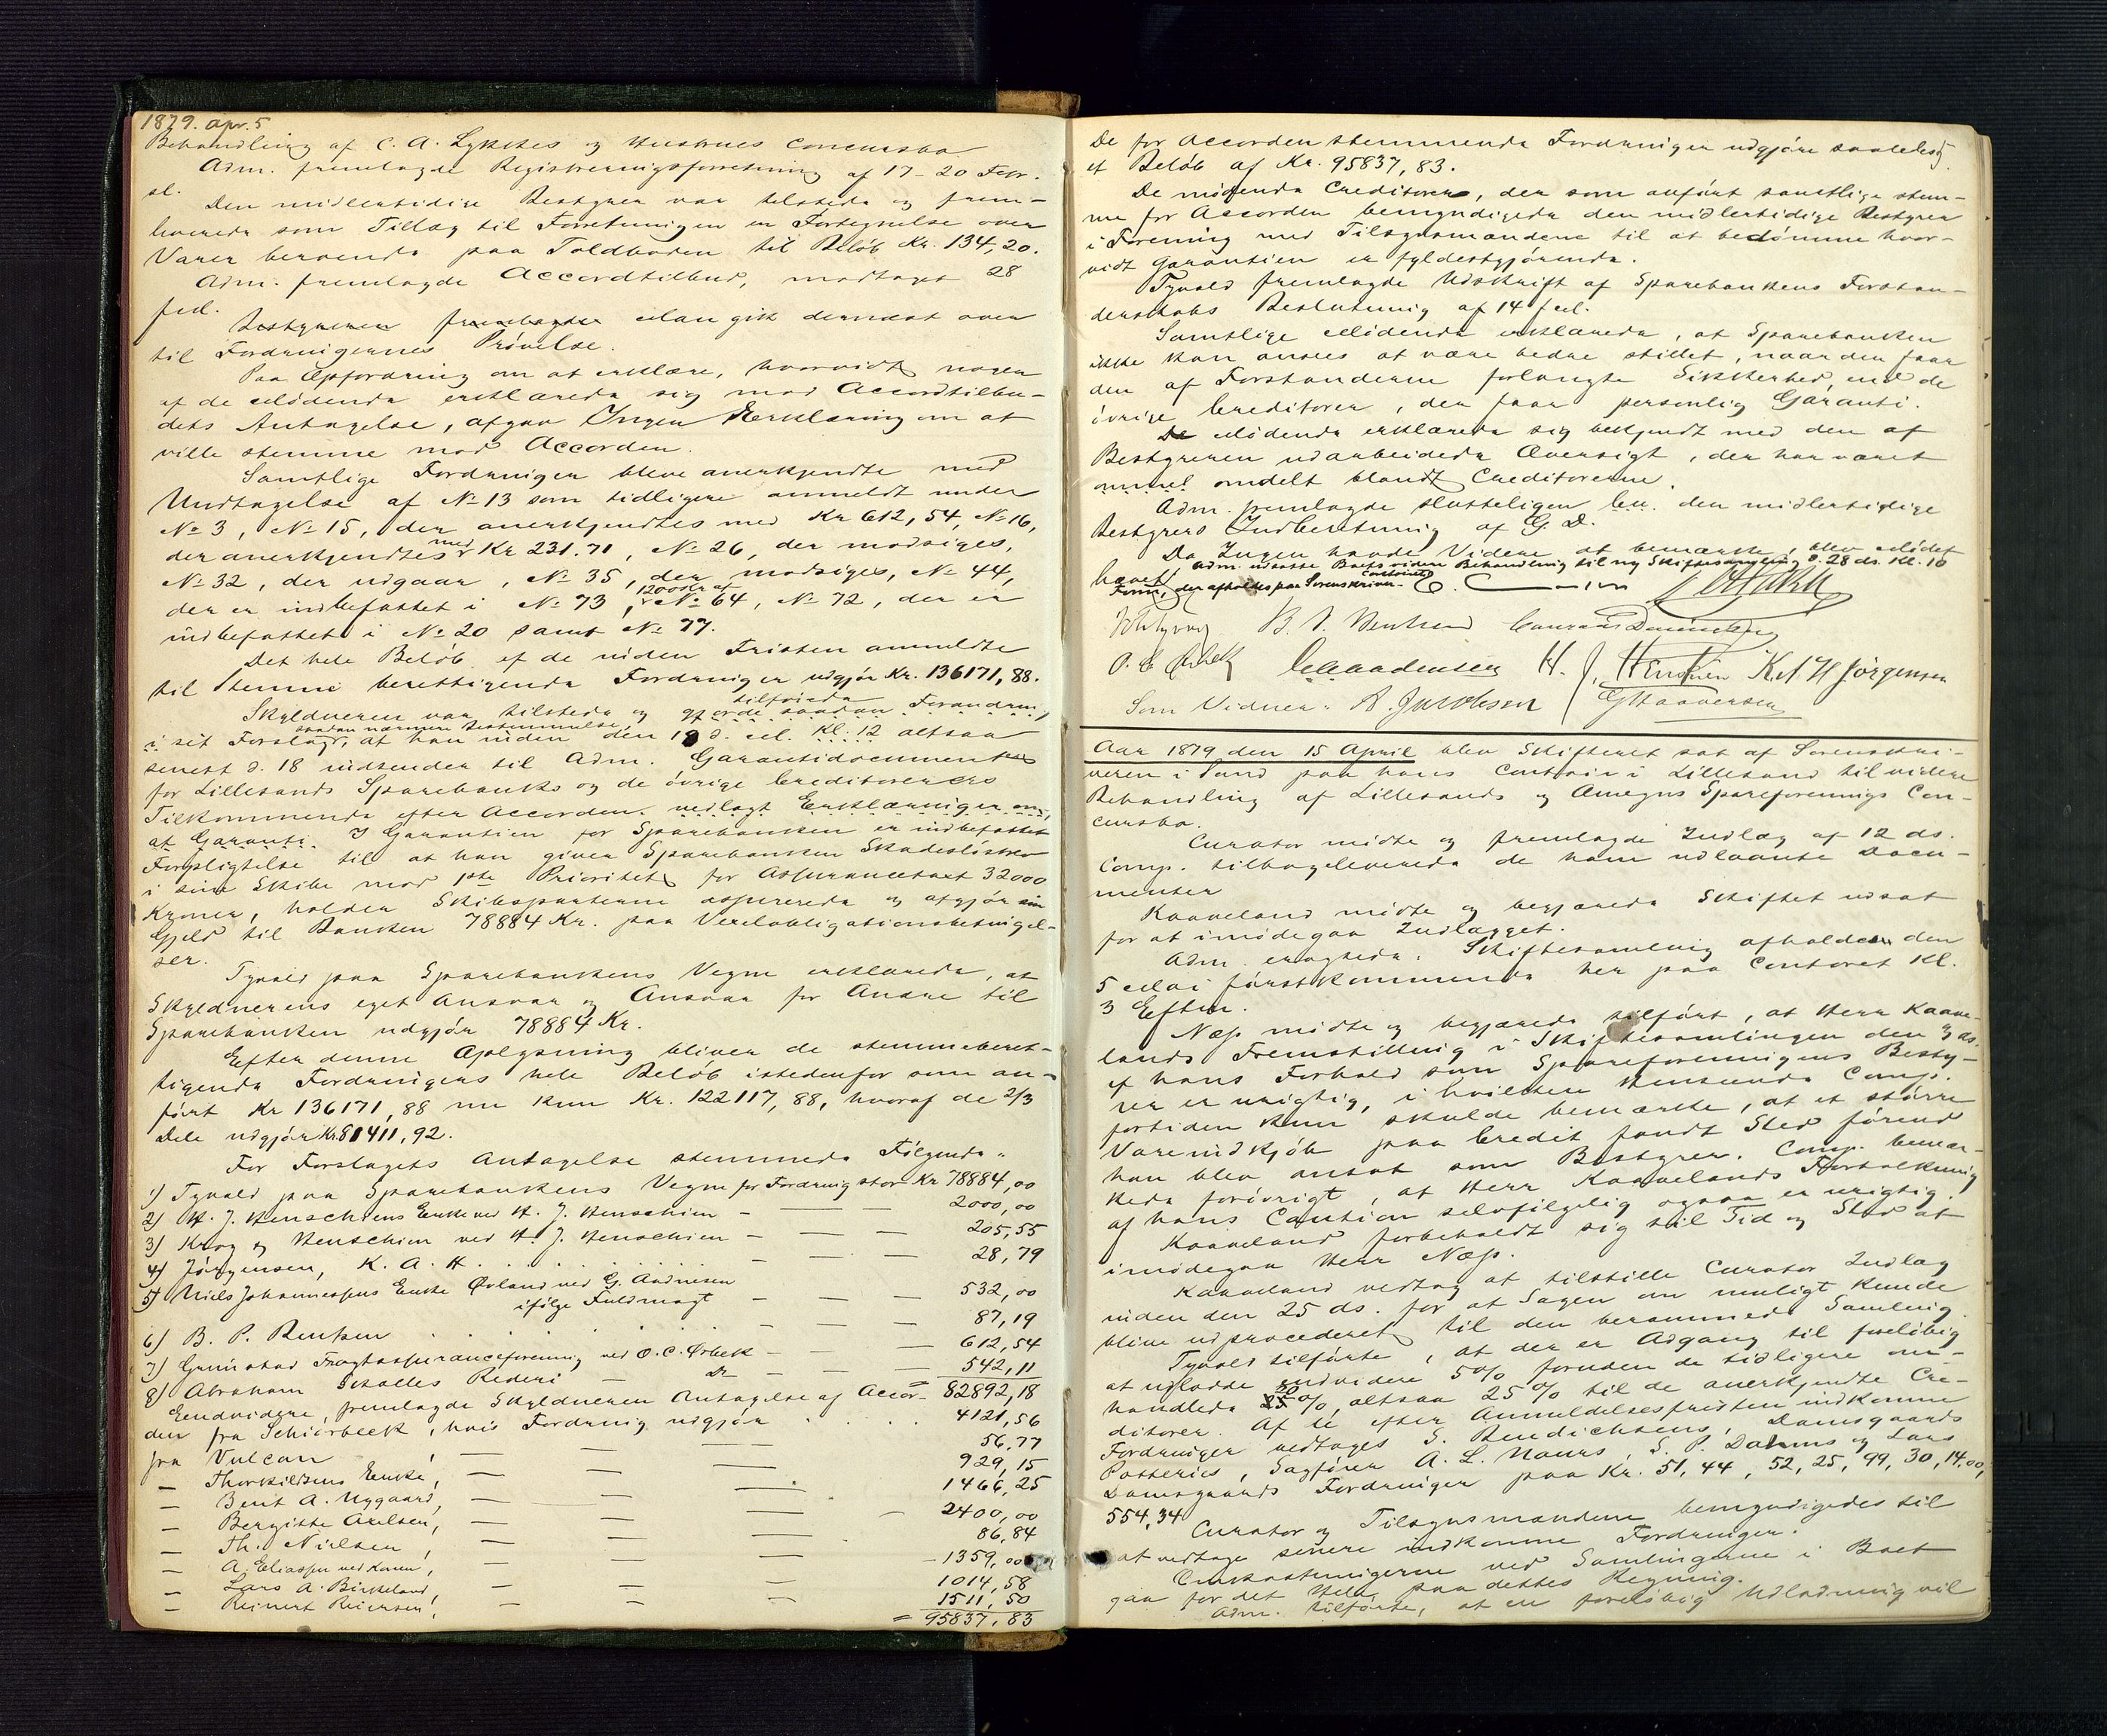 1879. apr. 5
Behandling af C. A. Lykkes og Hustrues Concursbo
Adm. fremlagde Registreringsforretning af 17-20 Febr.
sl.
Den midlertidige Bestyrer var tilstede og frem-
leverede som Tillæg til Forretningen en Fortegnelse over
Varer beroende paa Toldboden til Beløb Kr. 134,20.
Adm. fremlagde Accordtilbud, modtaget 28
f.ed.
Bestyreren fremlagde Man gik dernæst over
til Fordringernes Prøvelse.
Paa Opfordring om at erklære, hvorvidt nogen
af de Mødende erklærede sig mod Accordtilbu-
dets Antagelse, afgav Ingen Erklæring om at
ville stemme mod Accorden.
Samtlige Fordringer bleve anerkjendte med
Undtagelse af No 13 som tidligere anmeldt under
No 3, No 15, der anerkjendtes med Kr 612,54, No 16,
der anerkjendtes med Kr 231.71, No 26, der modsiges,
No 32, der udgaar, No 35, der modsiges, No 44,
der er indbefattet i No 73, 1200 Kr. af No 64, No 72, der er
indbefattet i No 20 samt No 77.
Det hele Beløb af de inden Fristen anmeldte
til Stemme berettigende Fordringer udgjør Kr. 136171,88.
Skyldneren var tilstede og gjorde tilføiede saadan Forandring
i sit Forslag, saadan nærmere Bestemmelse, at han inden den 19 d. M. Kl. 12 altsaa
senest d. 18 indsender til Adm. Garantidocumenter
for Lillesands Sparebanks og de øvrige Creditorers
Tilkommende efter Accorden. vedlagt Erklæringer om,
at Garanti. I Garantien for Sparebanken er indbefattet
Forpligtelse til at han giver Sparebanken Skadesløsbrev
i sine Skibe mod 1ste Prioritet for Assurancetaxt 32000
Kroner, holder Skibsparterne assurerede og afgjør sin
Gjeld til Banken 78884 Kr. paa Vexelobligationsbetingel-
ser.
Tyvold paa Sparebankens Vegne erklærede, at
Skyldnerens eget Ansvar og Ansvar for Andre til
Sparebanken udgjør 78884 Kr.
Efter denne Oplysning bliver de stemmeberet-
tigende Fordringers hele Beløb istedenfor som an-
ført Kr 136171,88 nu kun Kr. 122117,88, hvoraf de 2/3
Dele udgjør Kr. 81411,92.
For Forslagets Antagelse stemmede Følgende:
1) Tyvold paa Sparebankens Vegne for Fordring stor Kr 78884,00
2) H. J. Henschiens Enke ved H. J. Henschien - 2000,00
3) Krog og Henschien ved H. J. Henschien - 205,55
4) Jørgensen, K. A. H. 28,79
5) Niels Johannessens Enke Øvland ved G. Aadnesen
ifølge Fuldmagt - 532,00
6) B. P. Bentsen 87,19
7) Grimstad Fragtassuranceforening ved O. C. Ørbeck - 612,54
8) Abraham Schalles Rederi - Do - 542,11
= 82892,18
Eendvidere, fremlagde Skyldneren Antagelse af Accor-
den fra Schiørbeck, hvis Fordring udgjør 4121,56
fra Vulcan 56,77
- Thorkildsens Enke, 929,15
- Berit A. Nygaard, 1466,25
- Bergitte Axelsen, 2400,00
- Th. Nielsen, 86,84
- A. Eliassen ved Konen, 1359,00
- Lars A. Birkeland, 1014,58
- Reinert Reiersen, 1511,50
= 95837,83
De for Accorden stemmende Fordringer udgjøre saaledes
et Beløb af Kr. 95837,83.
De mødende Creditorer, der som anført samtlige stem-
me for Accorden bemyndigede den midlertidige Bestyrer
i Forening med Tilsynsmændene til at bedømme hvor-
vidt Garantien er fyldestgjørende.
Tyvold fremlagde Udskrift af Sparebankens Forstan-
derskabs Beslutning af 14 f.ed.
Samtlige Mødende erklærede, at Sparebanken
ikke kan ansees at være bedre stillet, naar den faar
den af Forstanderne forlangte Sikkerhed, end de
øvrige Creditorer, der faar personlig Garanti.
De Mødende erklærede sig bekjendt med den af
Bestyreren udarbeidede Oversigt, der har været
omdelt blandt Creditorerne.
Adm. fremlagde sluttelig den midlertidige
Bestyrers Indberetning af G. D.
Da Ingen havde Videre at bemærke, blev Mødet
hævet, Adm. udsatte Boets videre Behandling til ny Skiftesamling d. 28 ds. Kl. 10
Form., der afholdes paa Sorenskriver- contoiret
B. P. Bentsen
H. J. Henschien K. A. H Jørgensen
Som Vidner: A. Jacobsen G Haaversen
Aar 1879 den 15 April blev Skifteret sat af Sorenskri-
veren i Sand paa hans Contoir i Lillesand til videre
Behandling af Lillesands og Omegns Spareforenings Con-
cursbo.
Curator mødte og fremlagde Indlæg af 12 ds.
Comp. tilbageleverede de ham udlaante Docu-
menter
Kaaveland mødte og begjærede Skiftet udsat
for at imødegaa Indlægget.
Adm. eragtede: Skiftesamling afholdes den
5 Mai førstkommende her paa Contoret Kl.
3 Efterm.
Næss mødte og begjærede tilført, at Herr Kaave-
lands Fremstilling i Skiftesamlingen den 3 ds.
af hans Forhold som Spareforeningens Besty-
rer er urigtig, i hvilken Henseende Comp.
fortiden kun skulde bemærke, at et større
Vareindkjøb paa Credit fandt Sted førend
han blev ansat som Bestyrer. Comp. bemær-
kede forøvrigt, at Herr Kaavelands Fortolkning
af hans Caution selvfølgelig ogsaa er urigtig.
Kaaveland forbeholdt sig til Tid og Sted at
imødegaa Herr Næss.
Kaaveland vedtog at tilstille Curator Indlæg
inden den 25 ds. for at Sagen om muligt kunde
blive udprocederet til den berammede Samling.
Tyvold tilførte, at der er Adgang til foreløbig
at udlodde endvidere 5% foruden de tidligere om-
handlede 20%, altsaa 25% til de anerkjendte Cre-
ditorer. Af de efter Anmeldelsesfristen indkomne
Fordringer vedtages S. Bendichsens, Damsgaards
Potteries, Sagfører A. L. Naurs, S. P. Dahms og Lars
Damsgaards Fordringer paa Kr. 51,44, 52,25, 99,30, 14,00,
554,34
Curator og Tilsynsmændene bemyndigedes til
at vedtage senere indkomne Fordringer.
Omkostningerne ved Samlingerne i Boet
gaa for det Hele paa dettes Regning.
Adm. tilførte, at en foreløbig Udlodning vil